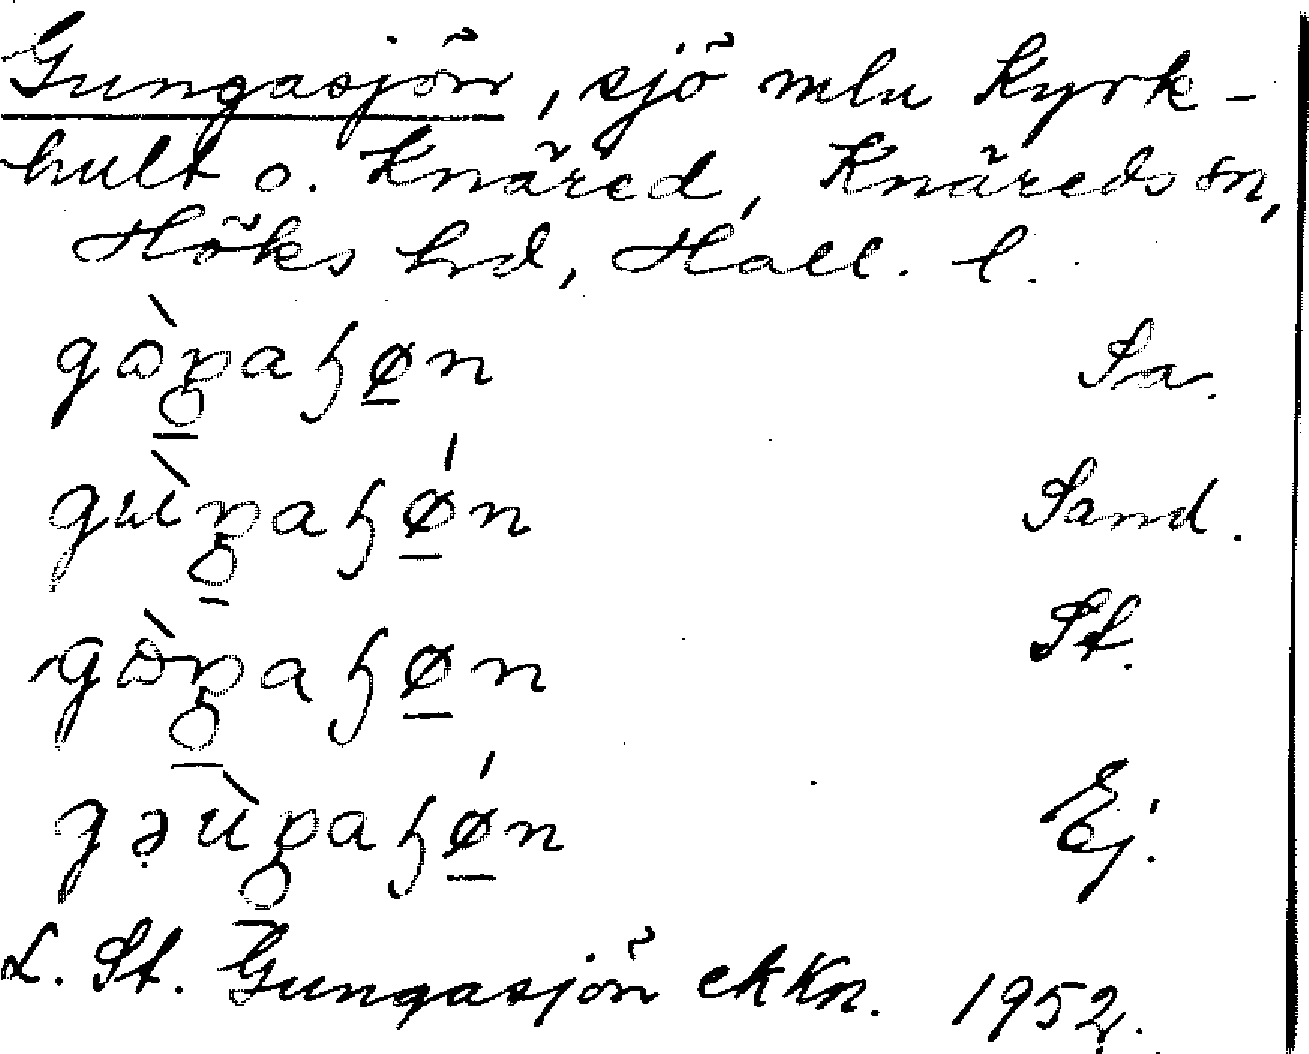 Gungasjön, sjö mln Kyrk-
hult o. Knäred, Knäreds sn,
Höks hd, Hall. l.
gòŋahøn Sa.
gùŋahǿn Sand.
gòŋahøn St.
gəùŋahǿn Ej.
L. St. Gungasjön ekKn. 1952.